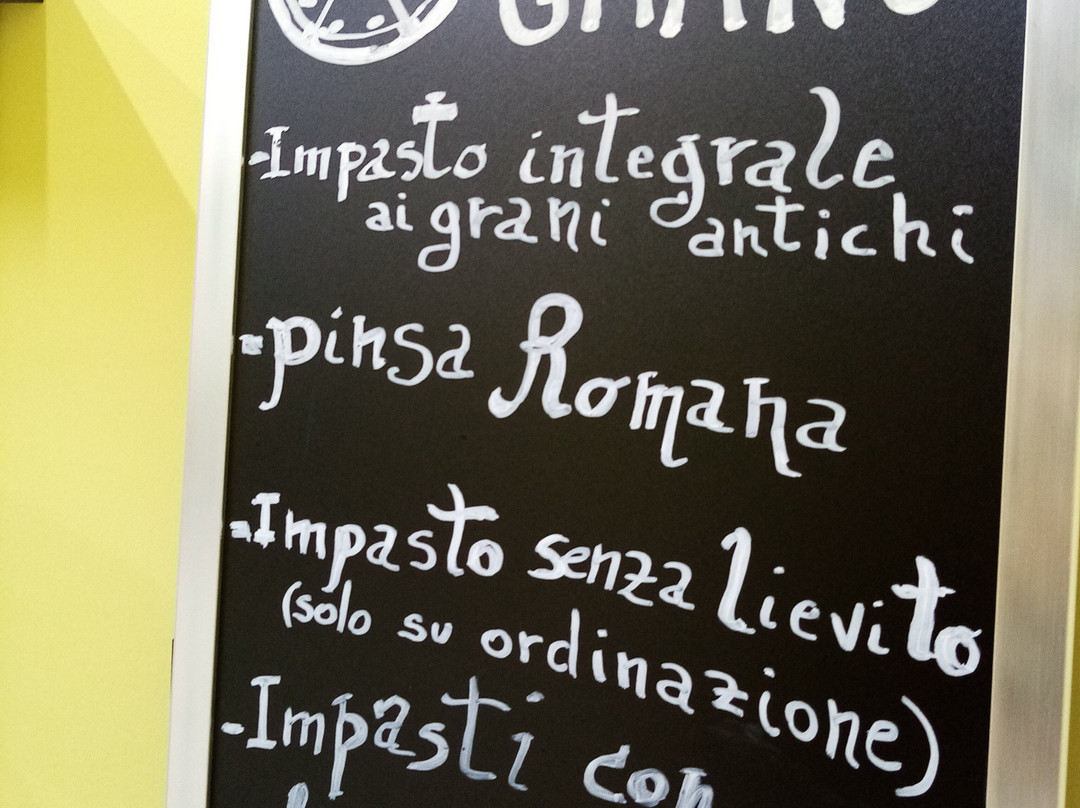 -Impasto integrale
ai grani antichi
-pinsa Romana
-Impasto senza lievito
(solo su ordinazione)
-Impasti con